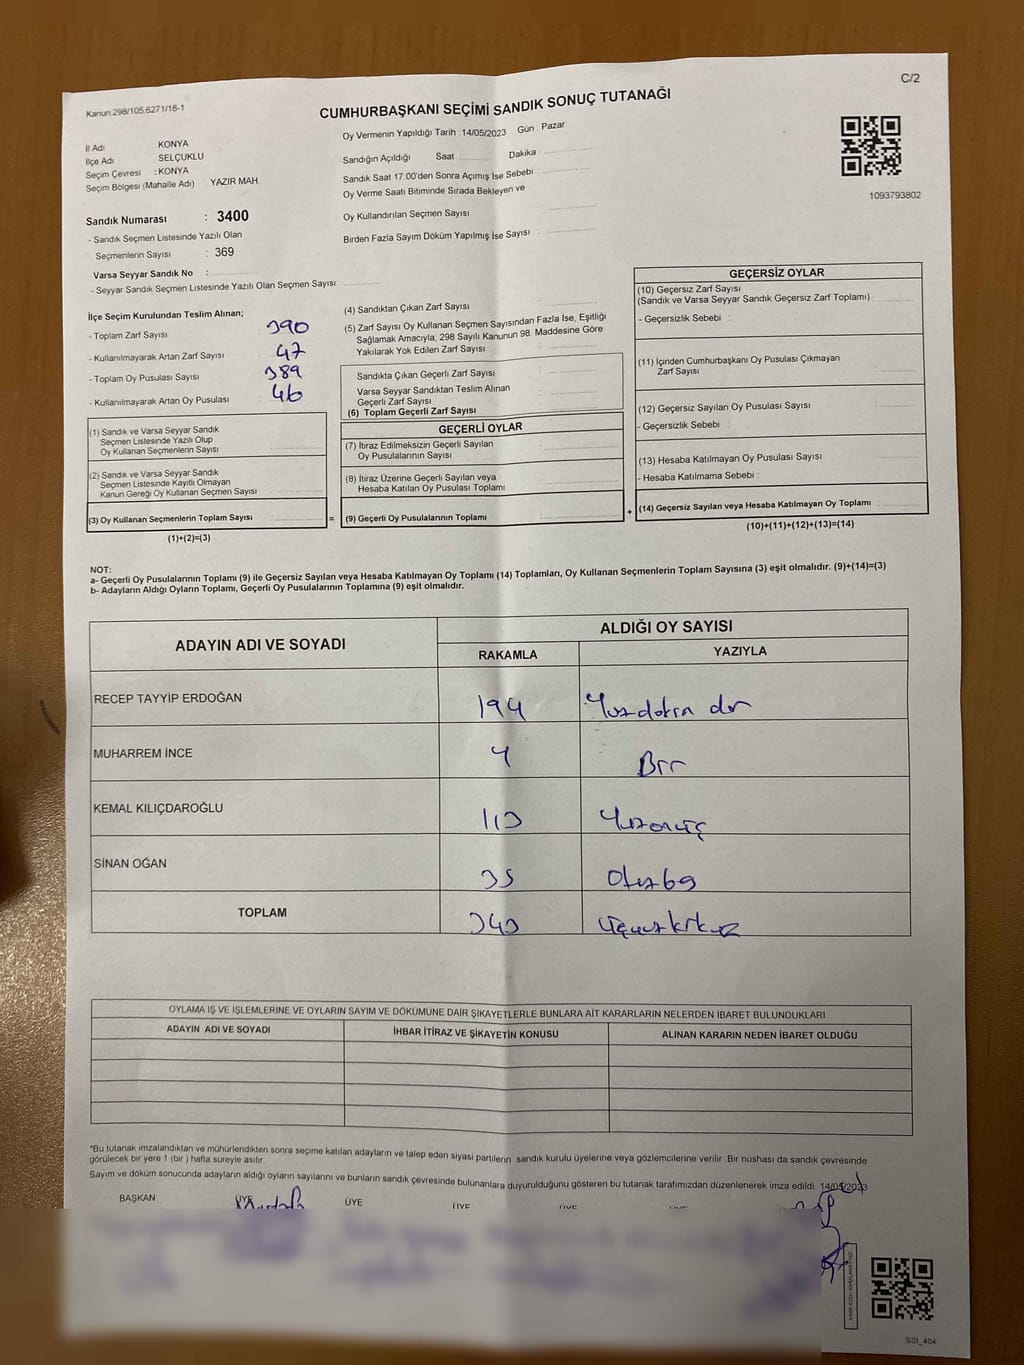 Kanun:298/105:6271/18-1
C/2
CUMHURBAŞKANI SEÇİMİ SANDIK SONUÇ TUTANAĞI
İl Adı KONYA
İlçe Adı SELÇUKLU
Seçim Çevresi : KONYA
Seçim Bölgesi (Mahalle Adı) YAZIR MAH.
Sandık Numarası : 3400
- Sandık Seçmen Listesinde Yazılı Olan
Seçmenlerin Sayısı : 369
Varsa Seyyar Sandık No :
- Seyyar Sandık Seçmen Listesinde Yazılı Olan Seçmen Sayısı
Oy Vermenin Yapıldığı Tarih : 14/05/2023 Gün : Pazar
Sandığın Açıldığı Saat Dakika
Sandık Saat 17:00'den Sonra Açımış İse Sebebi
Oy Verme Saati Bitiminde Sırada Bekleyen ve
Oy Kullandırılan Seçmen Sayısı
Birden Fazla Sayım Döküm Yapılmış İse Sayısı :
1093793802
İlçe Seçim Kurulundan Teslim Alınan;
- Toplam Zarf Sayısı : 390
- Kullanılmayarak Artan Zarf Sayısı : 47
- Toplam Oy Pusulası Sayısı : 389
- Kullanılmayarak Artan Oy Pusulası : 46
(1) Sandık ve Varsa Seyyar Sandık
Seçmen Listesinde Yazılı Olup
Oy Kullanan Seçmenlerin Sayısı
(2) Sandık ve Varsa Seyyar Sandık
Seçmen Listesinde Kayıtlı Olmayan
Kanun Gereği Oy Kullanan Seçmen Sayısı
(3) Oy Kullanan Seçmenlerin Toplam Sayısı
(1)+(2)=(3)
=
(4) Sandıktan Çıkan Zarf Sayısı
(5) Zarf Sayısı Oy Kullanan Seçmen Sayısından Fazla İse, Eşitliği
Sağlamak Amacıyla, 298 Sayılı Kanunun 98. Maddesine Göre
Yakılarak Yok Edilen Zarf Sayısı
Sandıkta Çıkan Geçerli Zarf Sayısı
Varsa Seyyar Sandıktan Teslim Alınan
Geçerli Zarf Sayısı
(6) Toplam Geçerli Zarf Sayısı
GEÇERLİ OYLAR
(7) İtiraz Edilmeksizin Geçerli Sayılan
Oy Pusulalarının Sayısı
(8) İtiraz Üzerine Geçerli Sayılan veya
Hesaba Katılan Oy Pusulası Toplamı
(9) Geçerli Oy Pusulalarının Toplamı
+
GEÇERSİZ OYLAR
(10) Geçersiz Zarf Sayısı
(Sandık ve Varsa Seyyar Sandık Geçersiz Zarf Toplamı) :
- Geçersizlik Sebebi :
(11) İçinden Cumhurbaşkanı Oy Pusulası Çıkmayan
Zarf Sayısı
(12) Geçersiz Sayılan Oy Pusulası Sayısı
- Geçersizlik Sebebi :
(13) Hesaba Katılmayan Oy Pusulası Sayısı
- Hesaba Katılmama Sebebi :
(14) Geçersiz Sayılan veya Hesaba Katılmayan Oy Toplamı
(10)+(11)+(12)+(13)=(14)
NOT:
a- Geçerli Oy Pusulalarının Toplamı (9) ile Geçersiz Sayılan veya Hesaba Katılmayan Oy Toplamı (14) Toplamları, Oy Kullanan Seçmenlerin Toplam Sayısına (3) eşit olmalıdır. (9)+(14)=(3)
b- Adayların Aldığı Oyların Toplamı, Geçerli Oy Pusulalarının Toplamına (9) eşit olmalıdır.
ADAYIN ADI VE SOYADI ALDIĞI OY SAYISI
RAKAMLA YAZIYLA
RECEP TAYYİP ERDOĞAN 194
MUHARREM İNCE
KEMAL KILIÇDAROĞLU 113 Yüzonüç
SİNAN OĞAN 35 Otuzbş
TOPLAM 343
OYLAMA İŞ VE İŞLEMLERİNE VE OYLARIN SAYIM VE DÖKÜMÜNE DAİR ŞİKAYETLERLE BUNLARA AİT KARARLARIN NELERDEN İBARET BULUNDUKLARI
ADAYIN ADI VE SOYADI İHBAR İTİRAZ VE ŞİKAYETİN KONUSU ALINAN KARARIN NEDEN İBARET OLDUĞU
*Bu tutanak imzalandıktan ve mühürlendikten sonra seçime katılan adayların ve talep eden siyasi partilerin sandık kurulu üyelerine veya gözlemcilerine verilir. Bir nüshası da sandık çevresinde
görülecek bir yere 1 (bir) hafta süreyle asılır.
Sayım ve döküm sonucunda adayların aldığı oyların sayılarını ve bunların sandık çevresinde bulunanlara duyurulduğunu gösteren bu tutanak tarafımızdan düzenlenerek imza edildi. 14/05/2023
BAŞKAN ÜYE ÜYE ÜYE ÜYE ÜYE